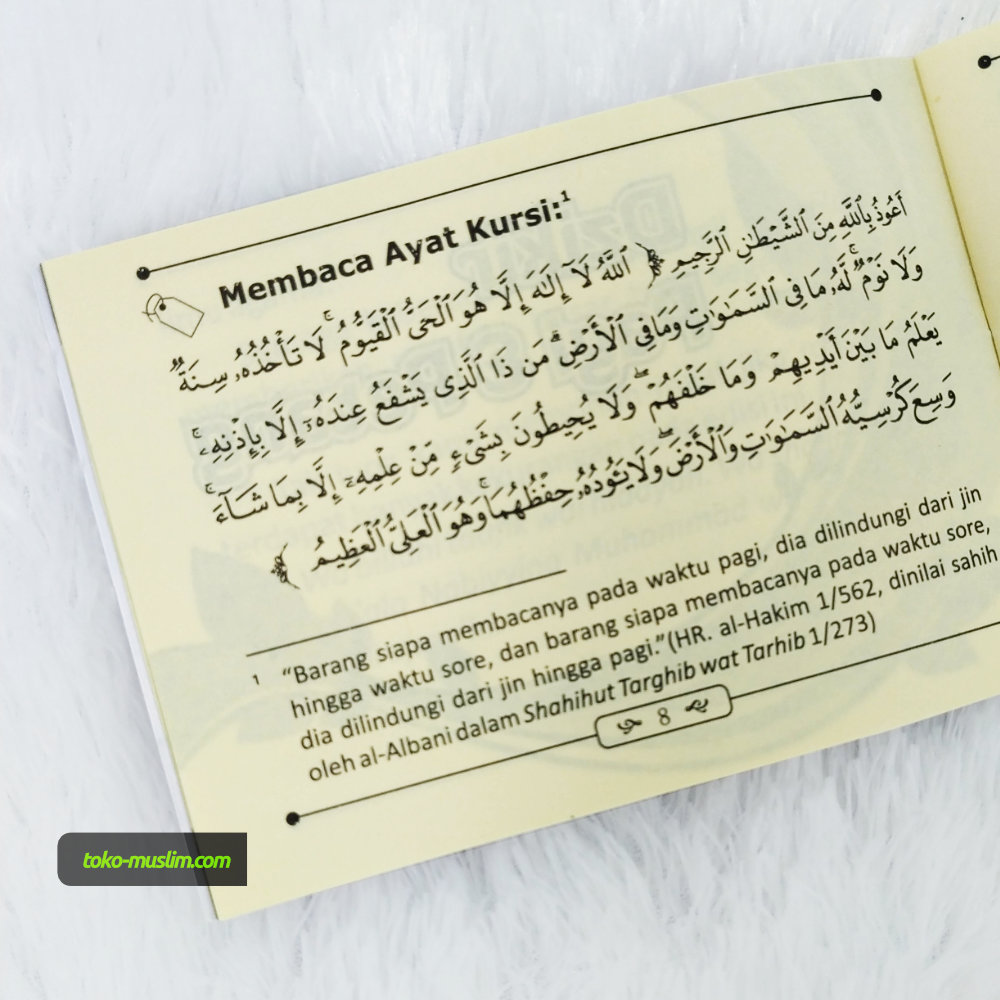 Membaca Ayat Kursi:¹
أَعُوذُ بِٱللَّهِ مِنَ ٱلشَّيْطَٰنِ ٱلرَّجِيمِ ﴿ ٱللَّهُ لَآ إِلَٰهَ إِلَّا هُوَ ٱلْحَىُّ ٱلْقَيُّومُ ۚ لَا تَأْخُذُهُۥ سِنَةٌ
وَلَا نَوْمٌ ۚ لَّهُۥ مَا فِى ٱلسَّمَٰوَٰتِ وَمَا فِى ٱلْأَرْضِ ۗ مَن ذَا ٱلَّذِى يَشْفَعُ عِندَهُۥٓ إِلَّا بِإِذْنِهِۦ ۚ
يَعْلَمُ مَا بَيْنَ أَيْدِيهِمْ وَمَا خَلْفَهُمْ ۖ وَلَا يُحِيطُونَ بِشَىْءٍ مِّنْ عِلْمِهِۦٓ إِلَّا بِمَا شَآءَ ۚ
وَسِعَ كُرْسِيُّهُ ٱلسَّمَٰوَٰتِ وَٱلْأَرْضَ ۖ وَلَا يَـُٔودُهُۥ حِفْظُهُمَا ۚ وَهُوَ ٱلْعَلِىُّ ٱلْعَظِيمُ ﴾
¹ “Barang siapa membacanya pada waktu pagi, dia dilindungi dari jin
hingga waktu sore, dan barang siapa membacanya pada waktu sore,
dia dilindungi dari jin hingga pagi.”(HR. al-Hakim 1/562, dinilai sahih
oleh al-Albani dalam Shahihut Targhib wat Tarhib 1/273)
8
toko-muslim.com